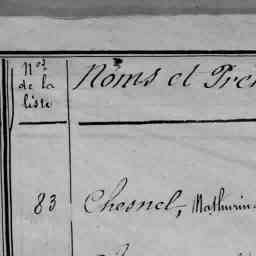 Nos de la liste
Noms et Pré
83 Chesnel, Mathurin